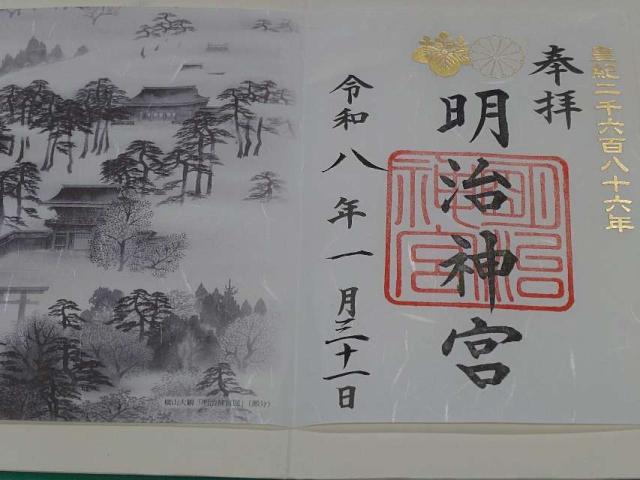 皇紀二千六百八十六年
奉拝
明治神宮
明治神宮
令和八年一月三十一日
横山大観「明治神宮図」(部分)